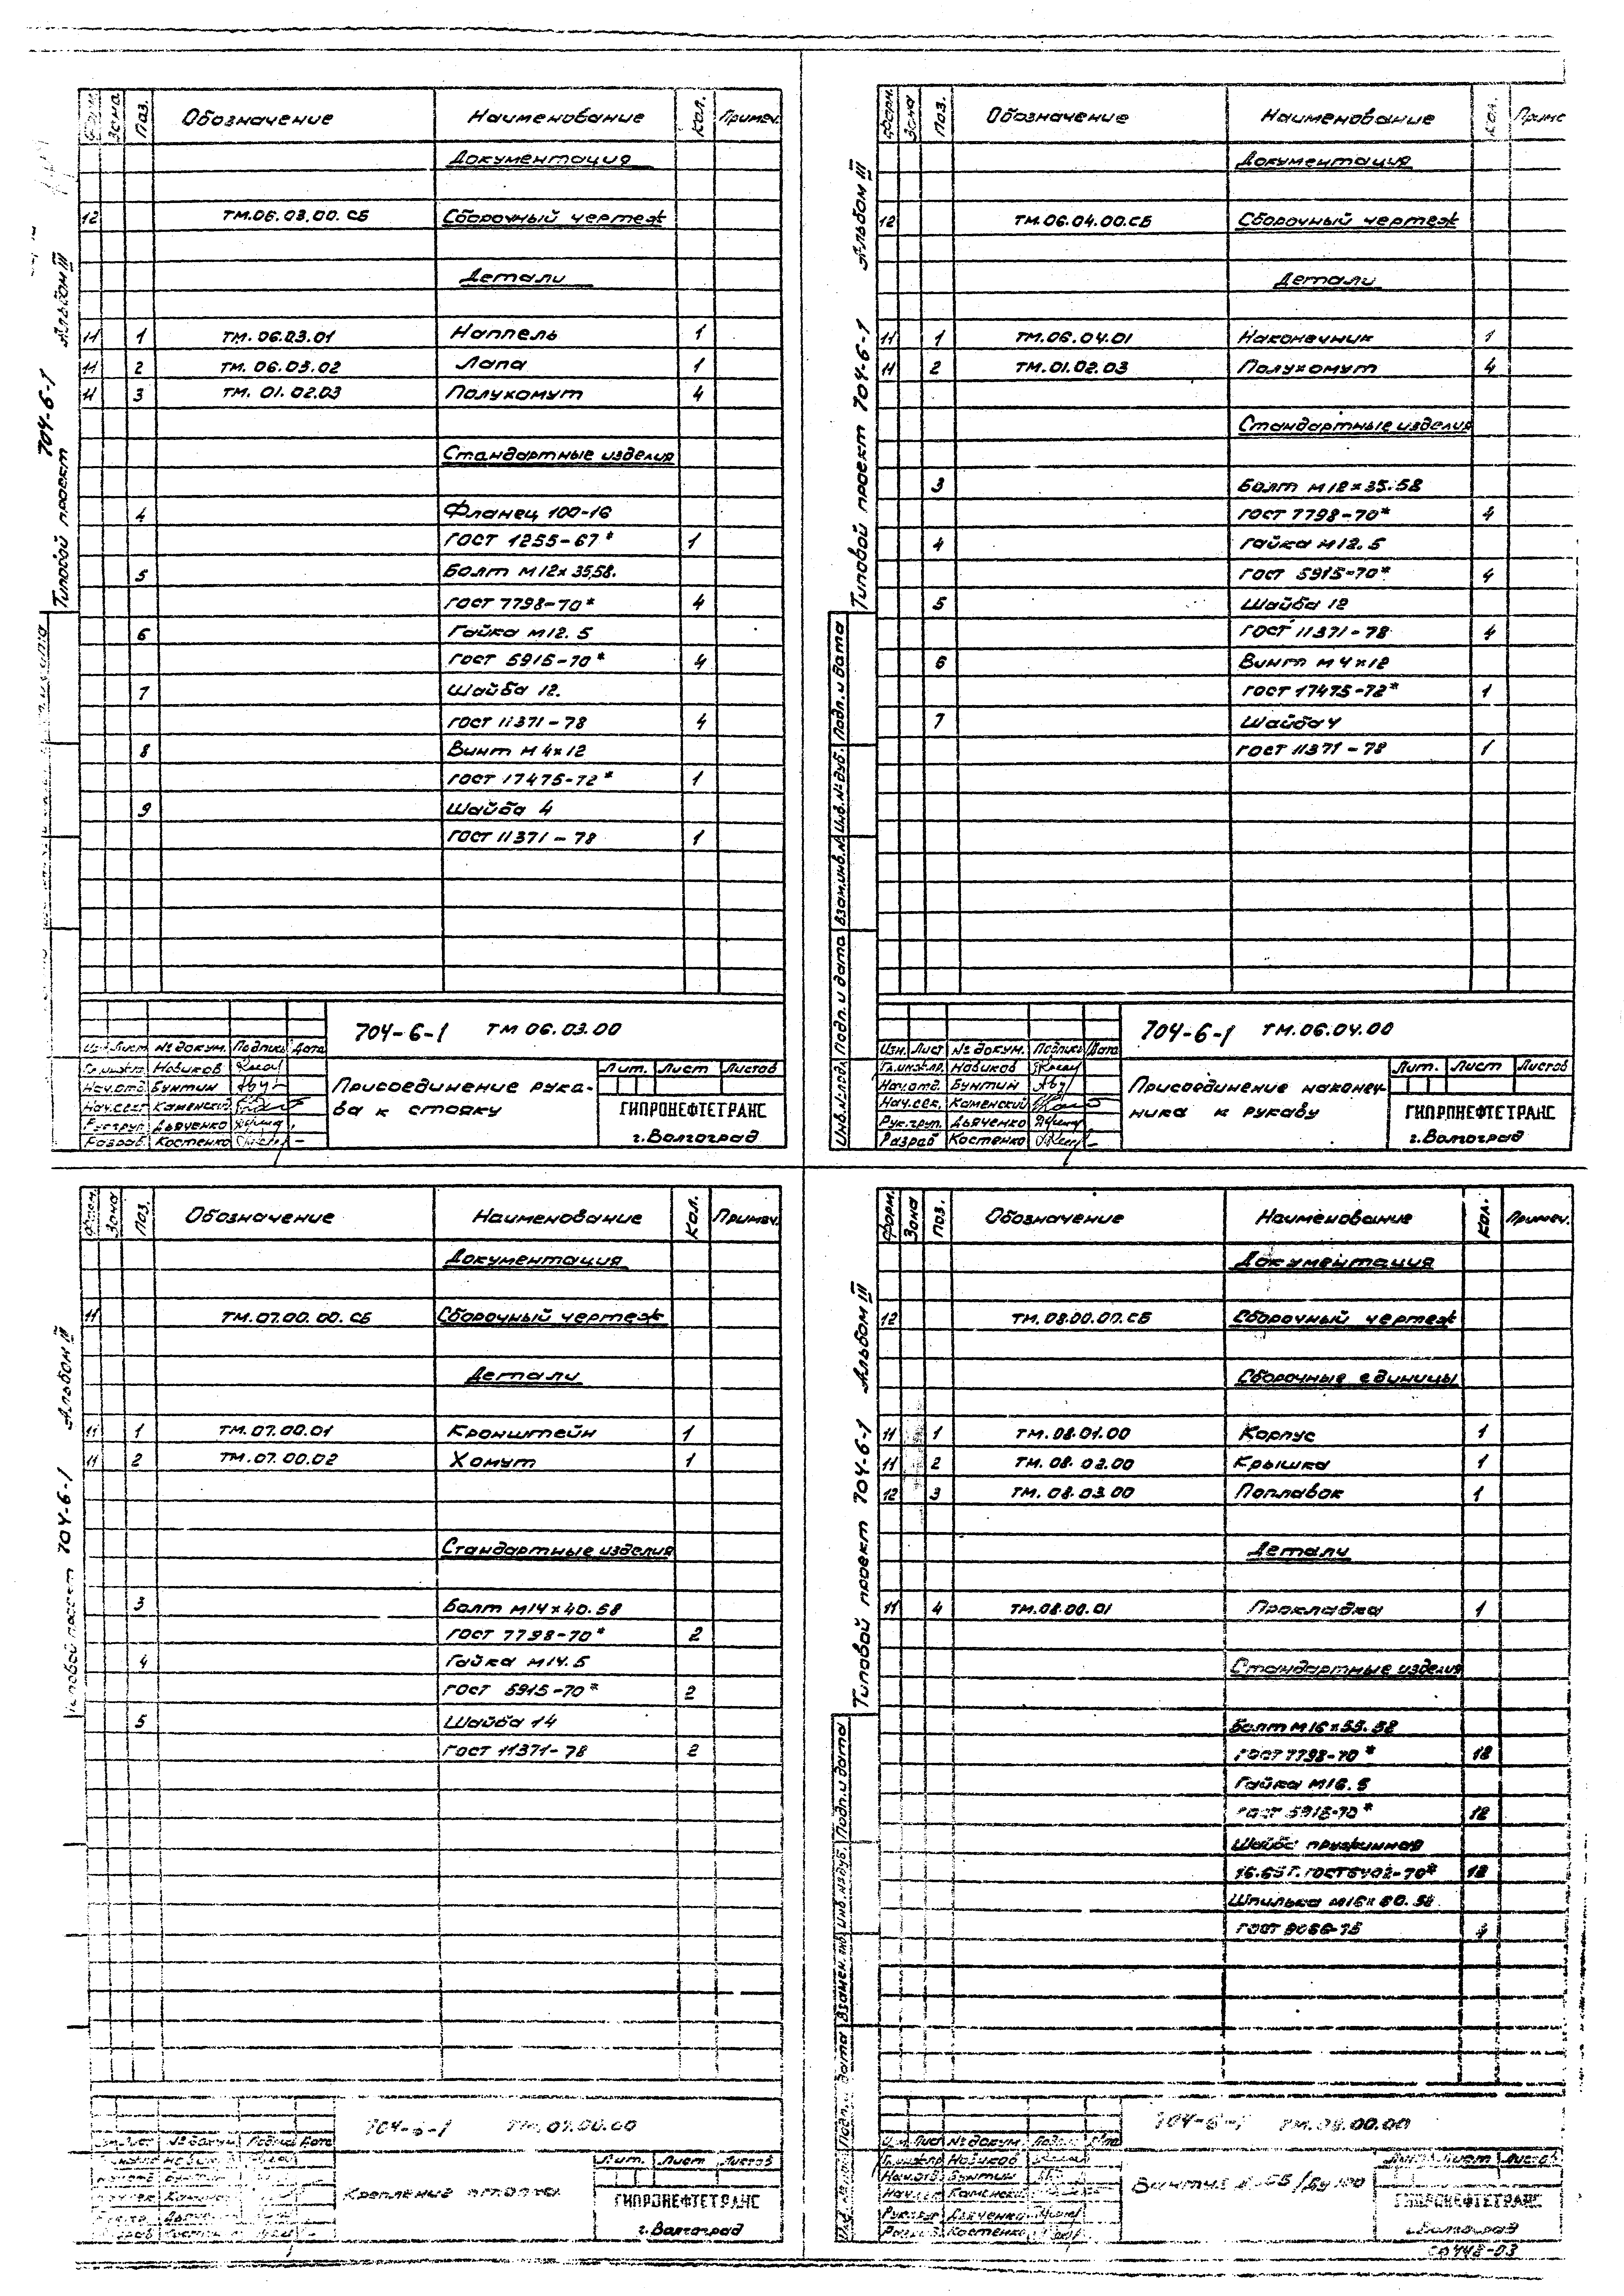 Зона Поз. Обозначение Наименование Кол. Примеч.
Документация
12 ТМ.06.03.00.СБ Сборочный чертеж
Детали
11 1 ТМ.06.03.01 Ниппель 1
11 2 ТМ.06.03.02 Лапа 1
11 3 ТМ.01.02.03 Полухомут 4
Стандартные изделия
4 Фланец 100-16
ГОСТ 1255-67* 1
5 Болт М12х35.58.
ГОСТ 7798-70* 4
6 Гайка М12.5
ГОСТ 5915-70* 4
7 Шайба 12.
ГОСТ 11371-78 4
8 Винт М4х12
ГОСТ 17475-72* 1
9 Шайба 4
ГОСТ 11371-78 1
Типовой проект 704-6-1 Альбом III
704-6-1 ТМ 06.03.00
Лист № докум. Подпись Дата
Новиков
Нач.отд. Бунтин
Нач.сек. Каменский
Рук.груп. Дьяченко
Разраб. Костенко
Присоединение рука-
ва к стояку
Лит. Лист Листов
ГИПРОНЕФТЕТРАНС
г.Волгоград
Форм. Зона Поз. Обозначение Наименование Кол. Приме
Документация
12 ТМ.06.04.00.СБ Сборочный чертеж
Детали
11 1 ТМ.06.04.01 Наконечник 1
11 2 ТМ.01.02.03 Полухомут 4
Стандартные изделия
3 Болт М12х35.58
ГОСТ 7798-70* 4
4 Гайка М12.5
ГОСТ 5915-70* 4
5 Шайба 12
ГОСТ 11371-78 4
6 Винт М4х12
ГОСТ 17475-72* 1
7 Шайба 4
ГОСТ 11371-78 1
Типовой проект 704-6-1 Альбом III
Инв.№ подл. Подп. и дата Взам.инв.№ Инв.№ дуб. Подп. и дата
704-6-1 ТМ.06.04.00
Изм. Лист № докум. Подпись Дата
Гл.инж.пр. Новиков
Нач.отд. Бунтин
Нач.сек. Каменский
Рук.груп. Дьяченко
Разраб Костенко
Присоединение наконеч-
ника к рукаву
Лит. Лист Листов
ГИПРОНЕФТЕТРАНС
г.Волгоград
Форм. Зона Поз. Обозначение Наименование Кол. Примеч.
Документация
11 ТМ.07.00.00.СБ Сборочный чертеж
Детали
11 1 ТМ.07.00.01 Кронштейн 1
11 2 ТМ.07.00.02 Хомут 1
Стандартные изделия
3 Болт М14х40.58
ГОСТ 7798-70* 2
4 Гайка М14.5
ГОСТ 5915-70* 2
5 Шайба 14
ГОСТ 11371-78 2
704-6-1 Альбом III
704-6-1 ТМ.07.00.00
Лист № докум. Подпись Дата
Крепление
Лит. Лист Листов
ГИПРОНЕФТЕТРАНС
г.Волгоград
Форм. Зона Поз. Обозначение Наименование Кол. Примеч.
Документация
12 ТМ.08.00.00.СБ Сборочный чертеж
Сборочные единицы
11 1 ТМ.08.01.00 Корпус 1
11 2 ТМ.08.02.00 Крышка 1
12 3 ТМ.08.03.00 Поплавок 1
Детали
11 4 ТМ.08.00.01 Прокладка 1
Стандартные изделия
Болт М16х55.58
ГОСТ 7798-70*
Гайка М16.5
ГОСТ 5915-70*
Шайба пружинная
16.65Г.ГОСТ 6402-70*
Шпилька М16х60.58
ГОСТ
Типовой проект 704-6-1 Альбом III
Инв.№ дуб. Подп. и дата
704-6-1 ТМ.08.00.00
Лист № докум.
Новиков
Нач.отд. Бунтин
Каменский
Рук.груп. Дьяченко
Костенко
Лист Листов
ГИПРОНЕФТЕТРАНС
г.Волгоград